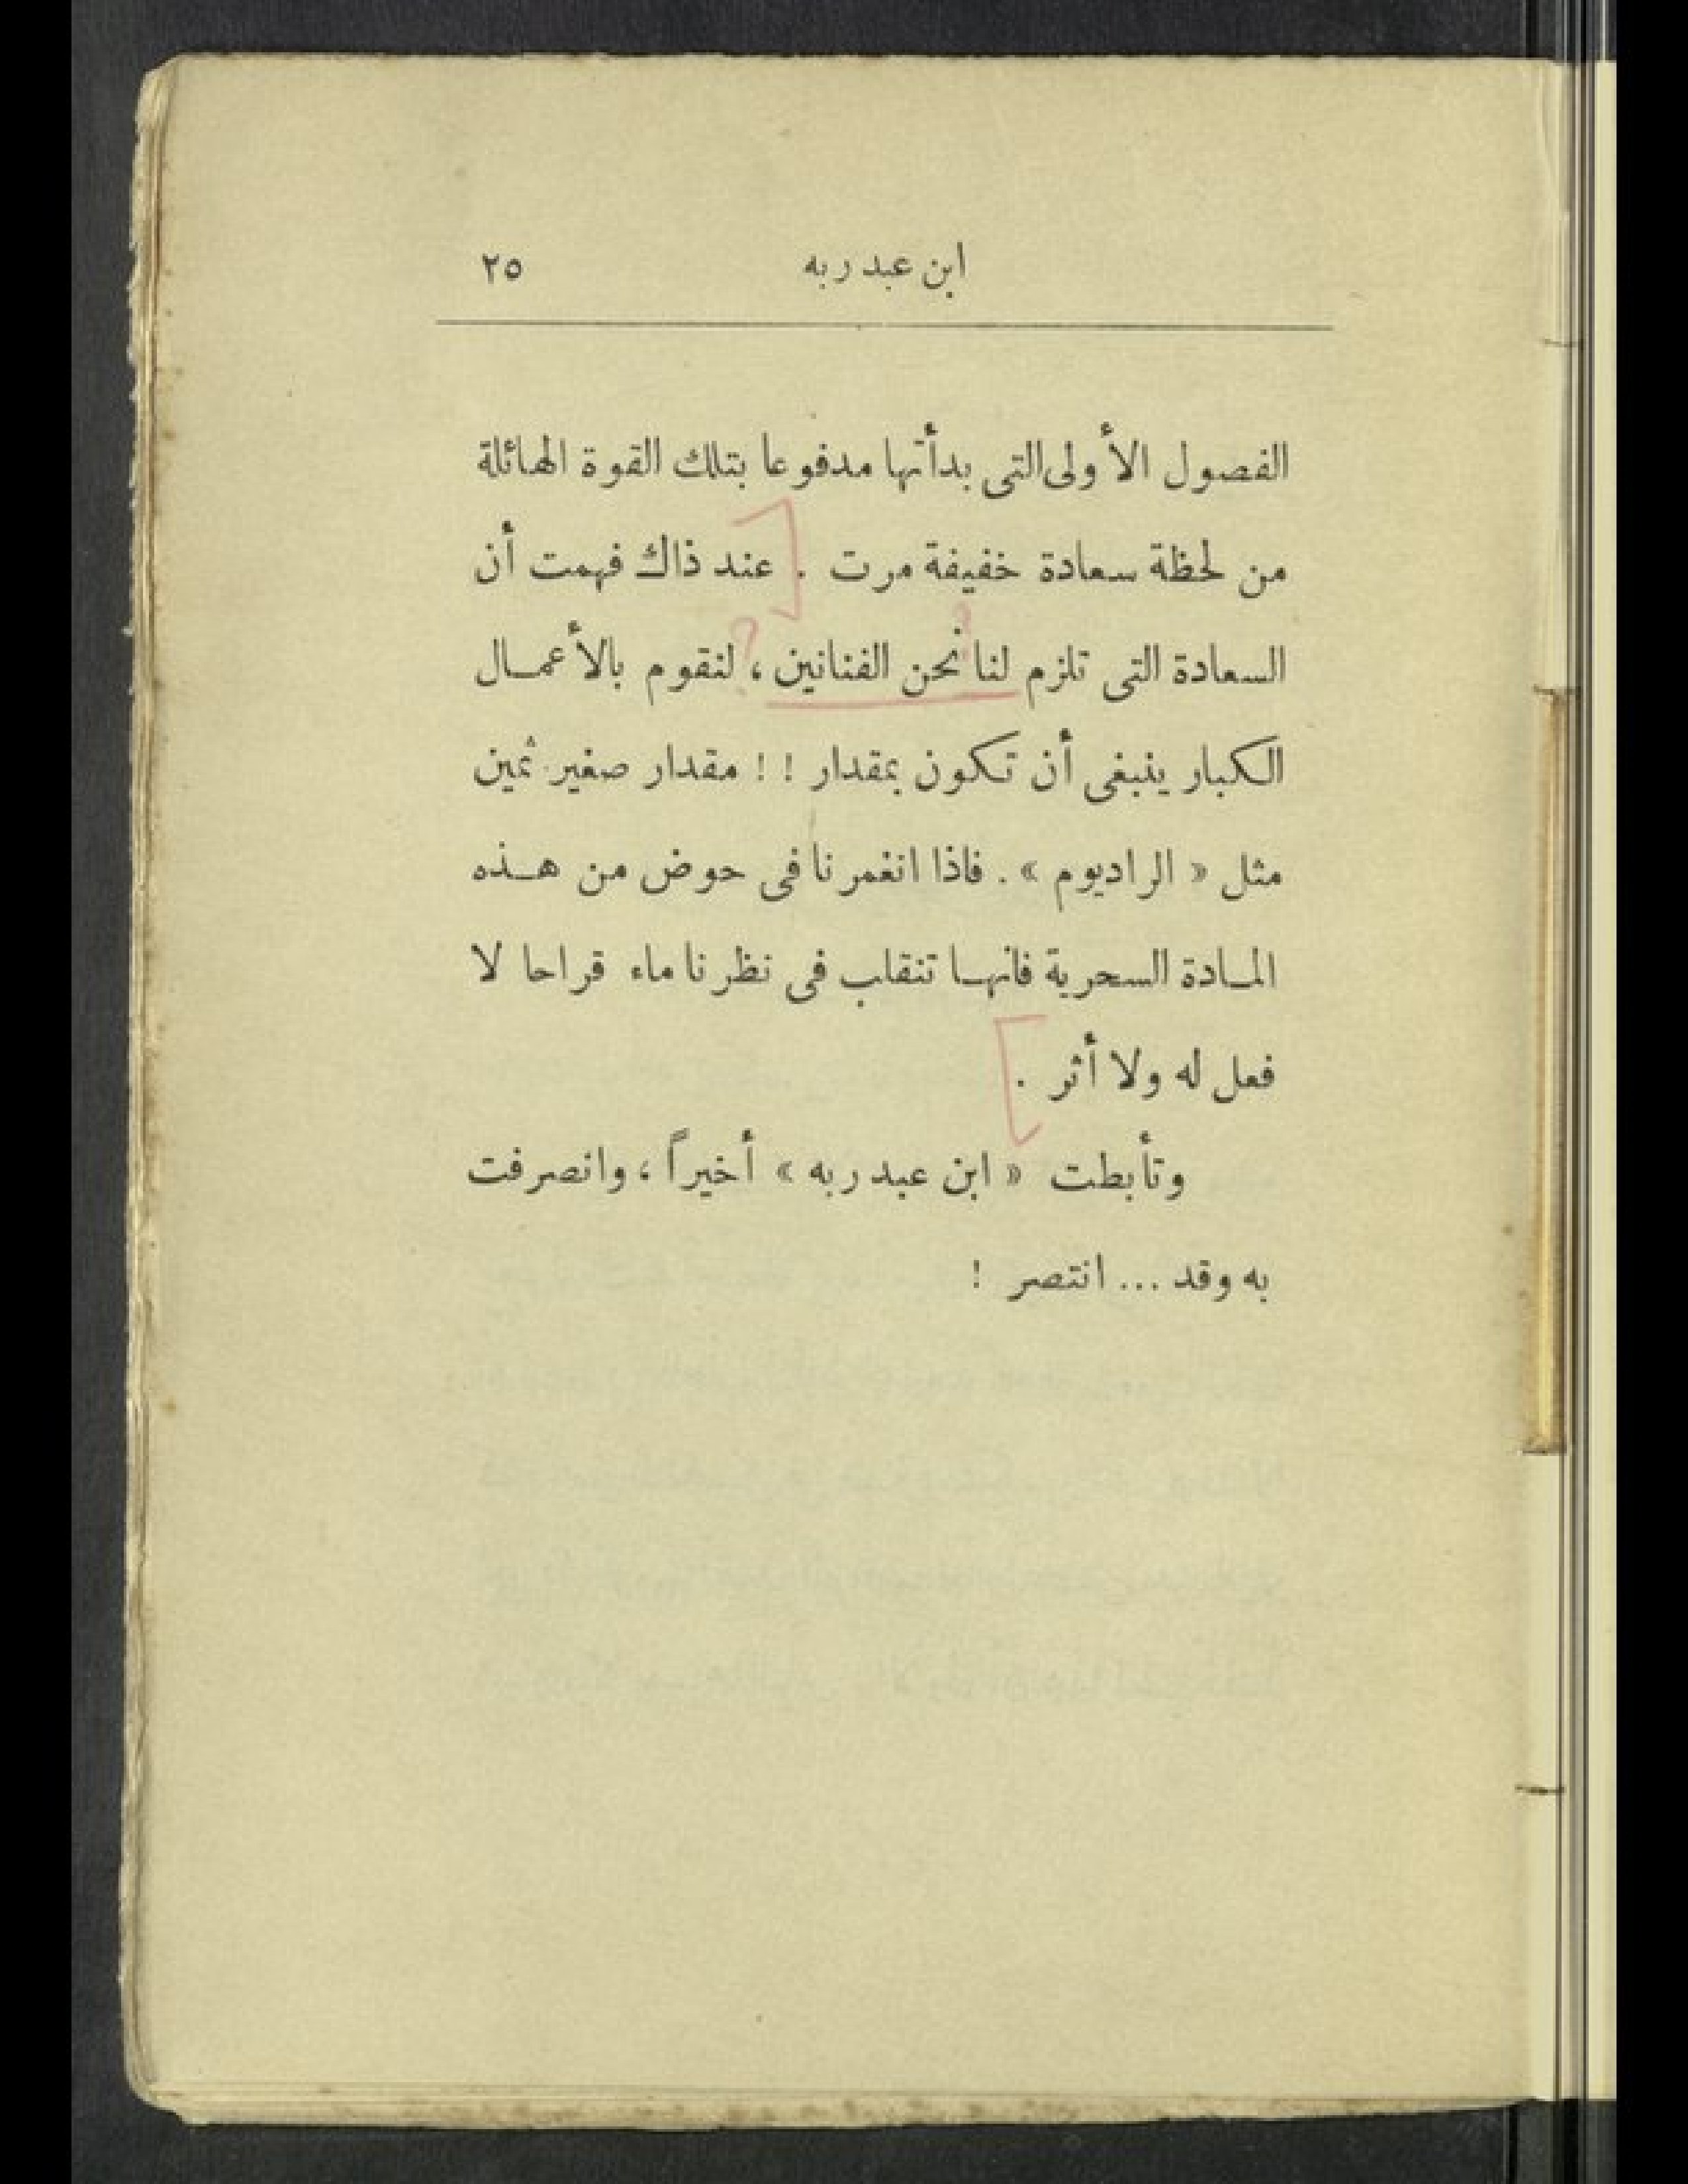 ابن عبد ربه ٢٥
الفصول الأولى التى بدأتها مدفوعا بتلك القوة الهائلة
من لحظة سعادة خفيفة مرت . عند ذاك فهمت أن
السعادة التى تلزم لنا نحن الفنانين ، لنقوم بالأعمـال
الكبار ينبغى أن تكون بمقدار ! ! مقدار صغير ثمين
مثل « الراديوم » . فاذا انغمرنا فى حوض من هـذه
المـادة السحرية فانهـا تنقلب فى نظرنا ماء قراحا لا
فعل له ولا أثر .
وتأبطت « ابن عبد ربه » أخيراً ، وانصرفت
به وقد ... انتصر !